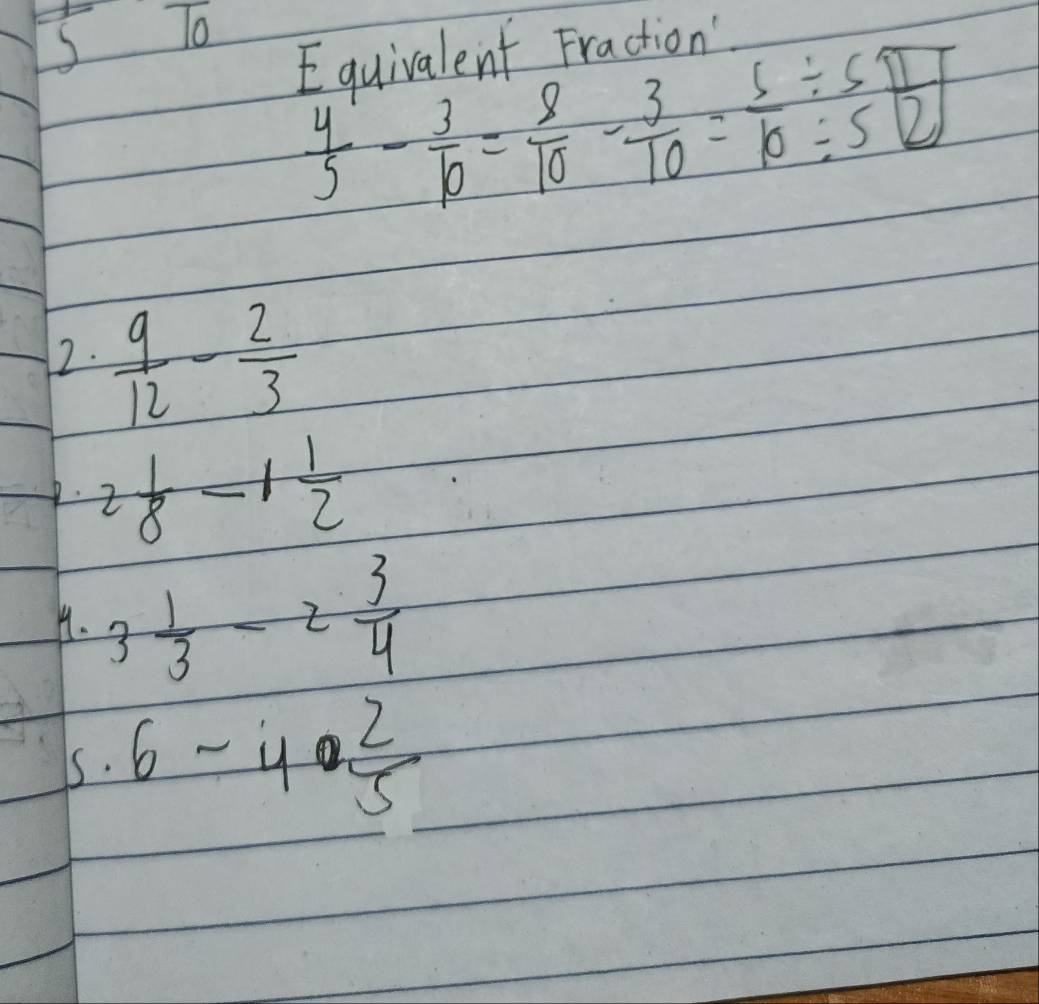 5 10
Equivalent Fraction
4/5 - 3/10 = 8/10 - 3/10 = 5/10 ÷ 5/5 1/2
2. 9/12 - 2/3
2 1/8 - 1 1/2
4. 3 1/3 - 2 3/4
5. 6 - 4 2/5